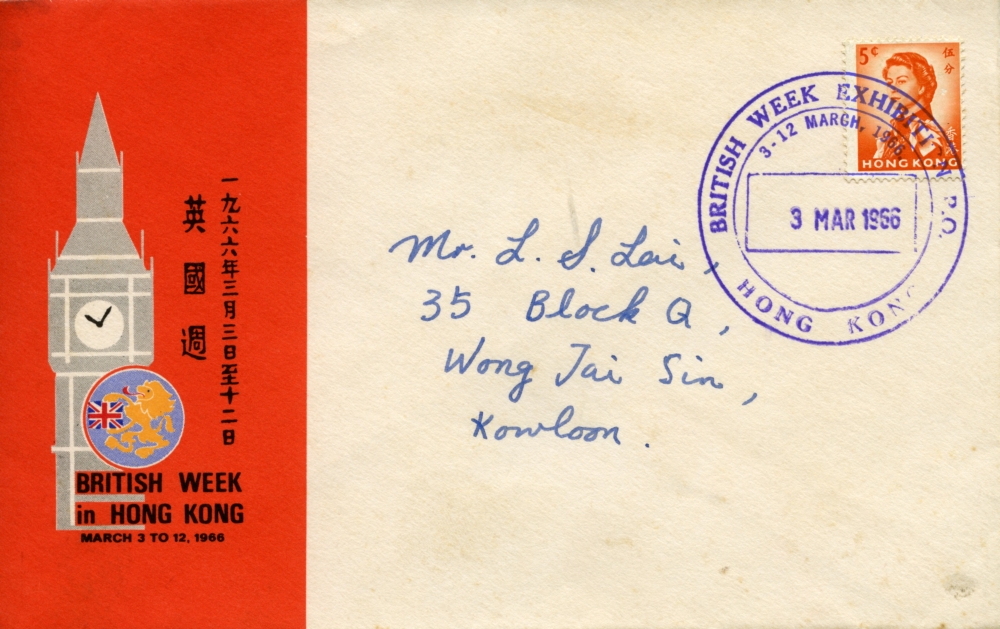 一九六六年三月三日至十二日
英國週
BRITISH WEEK
in HONG KONG
MARCH 3 TO 12, 1966
Mr. L. S. Lai,
35 Block Q,
Wong Tai Sin,
Kowloon.
5¢
伍分
香港
HONG KONG
BRITISH WEEK EXHIBITION P.O.
3-12 MARCH, 1966
3 MAR 1966
HONG KONG